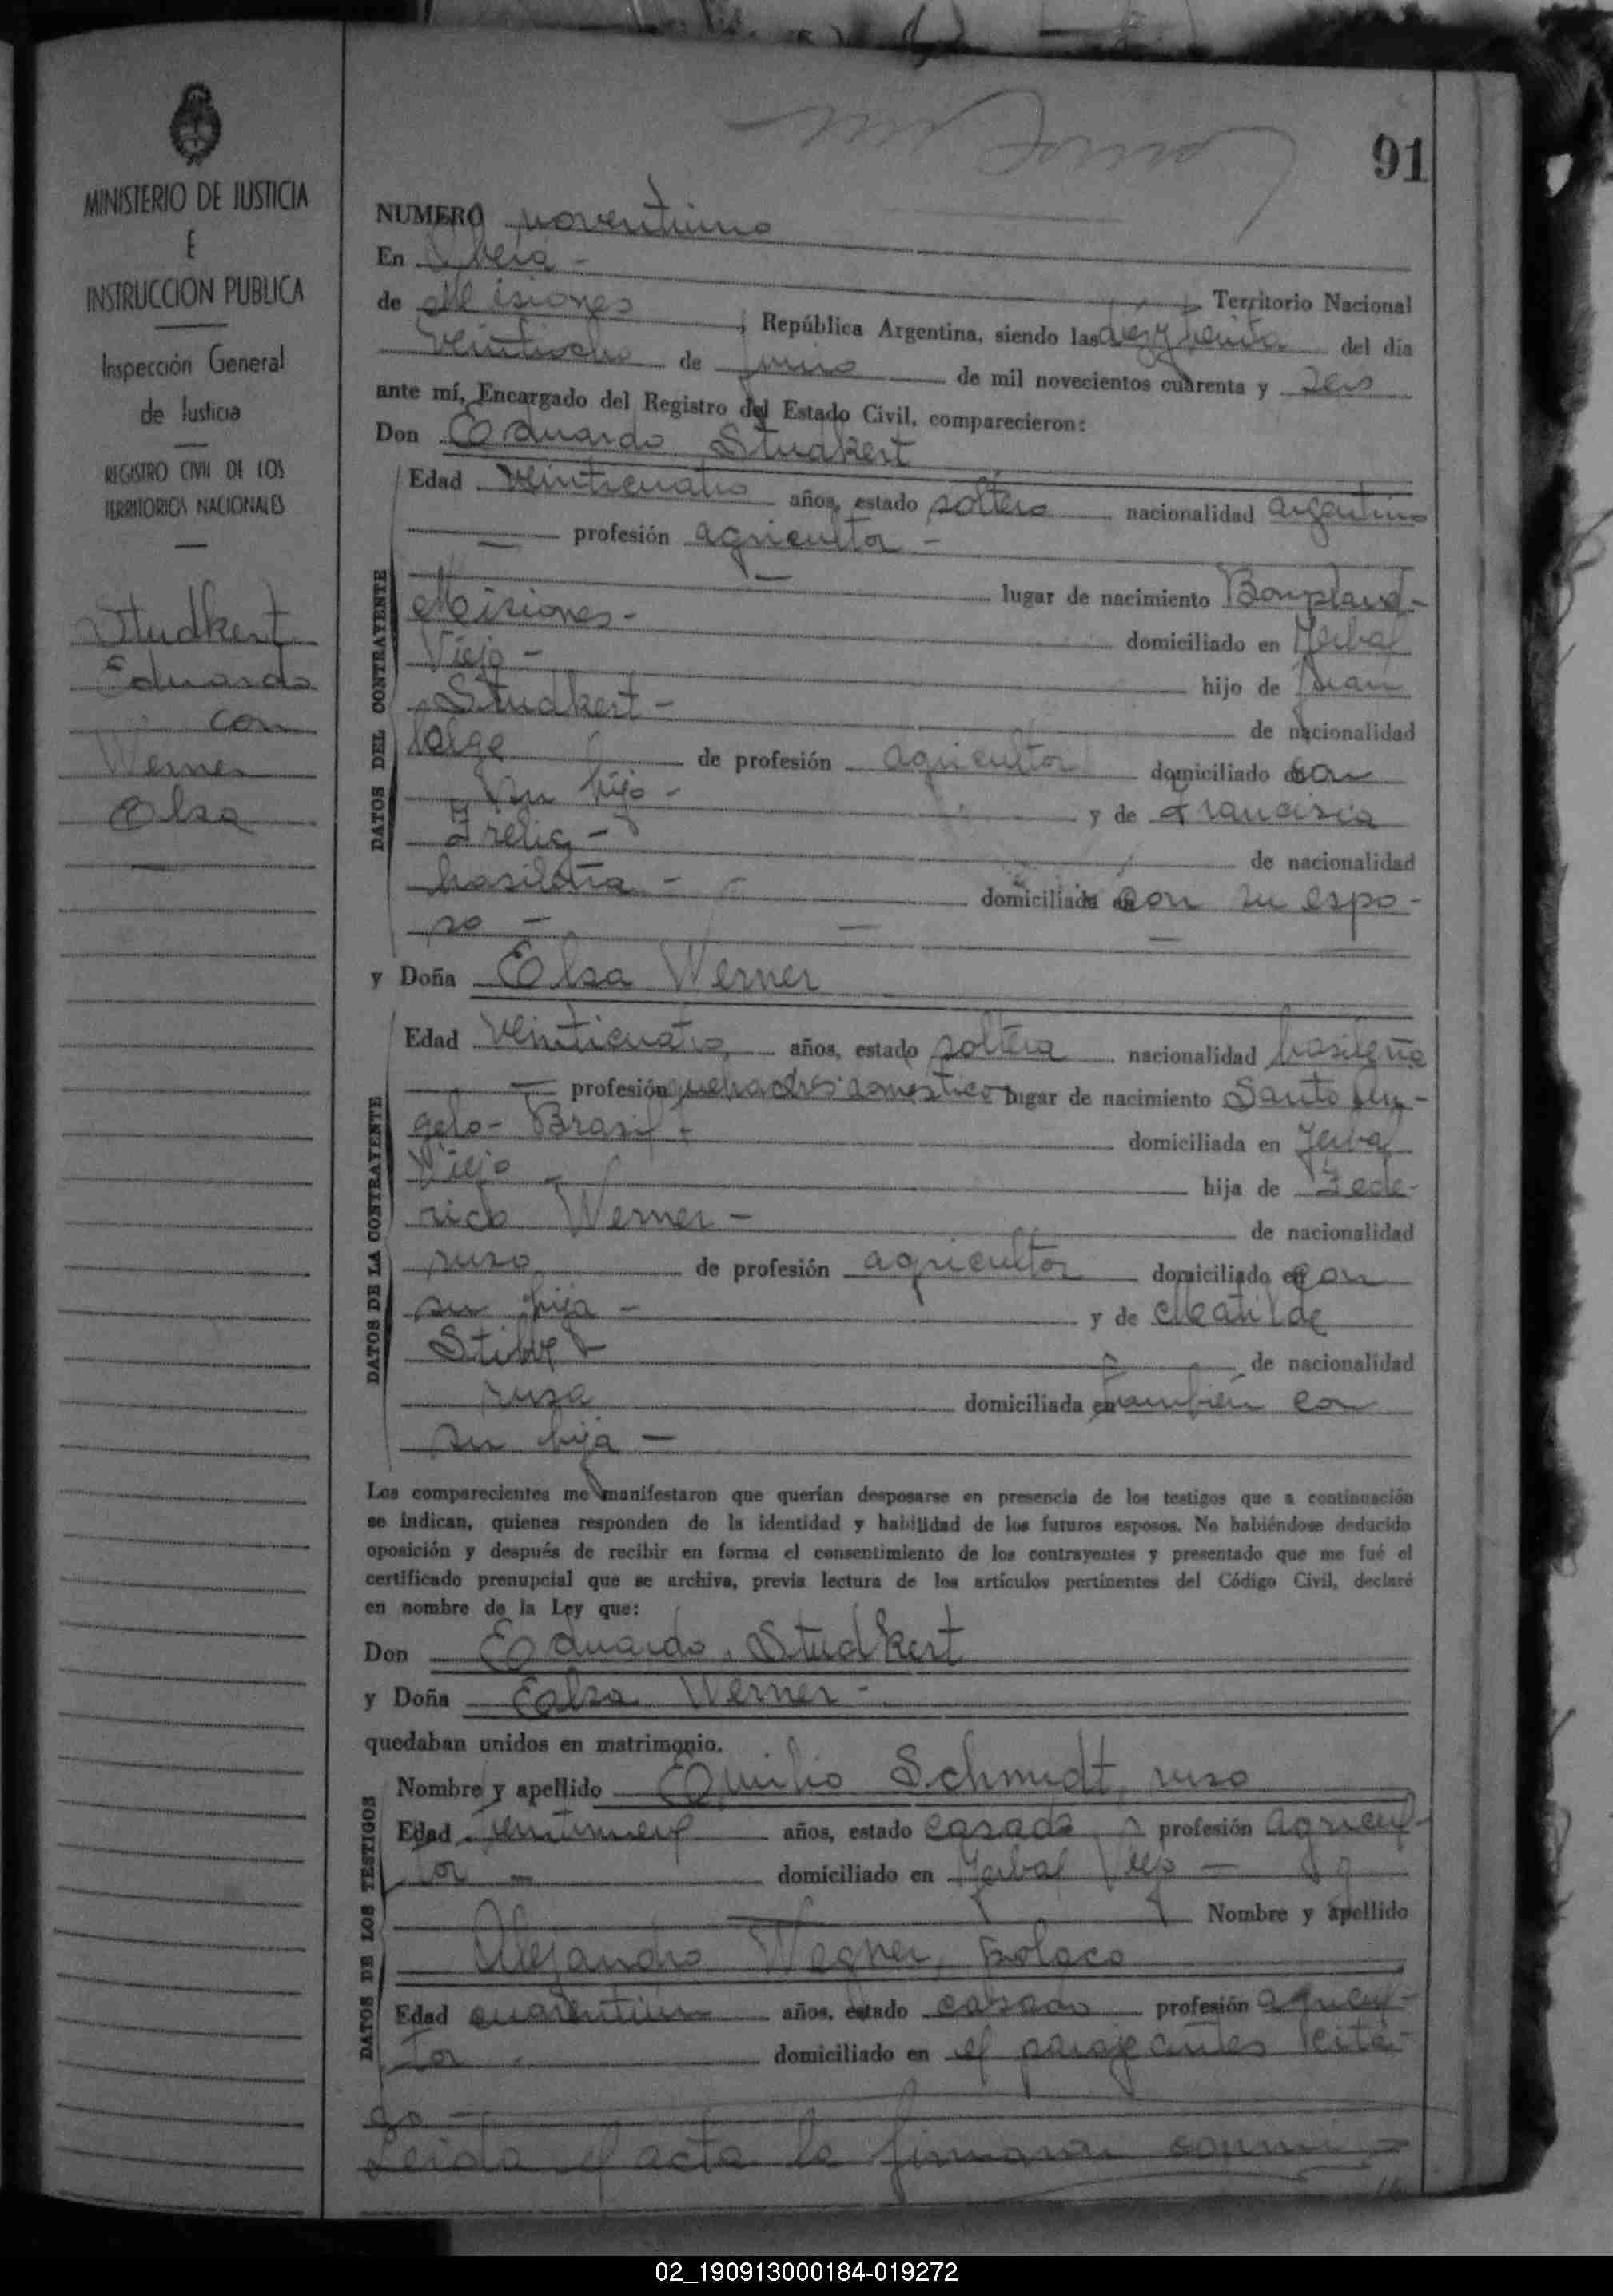 91
MINISTERIO DE JUSTICIA
E
INSTRUCCION PUBLICA
Inspección General
de Justicia
REGISTRO CIVIL DE LOS
TERRITORIOS NACIONALES
Studkert
Eduardo
con
Werner
Elsa
NUMERO noventiuno
En Oberá -
Territorio Nacional
de Misiones, República Argentina, siendo las diez y treinta del día
veintiocho de junio de mil novecientos cuarenta y seis
ante mí, Encargado del Registro del Estado Civil, comparecieron:
Don Eduardo Studkert
DATOS DEL CONTRAYENTE
Edad veinticuatro años, estado soltero nacionalidad argentino
— profesión agricultor -
lugar de nacimiento Bonpland-
Misiones- domiciliado en Yerbal
Viejo - hijo de Juan
Studkert - de nacionalidad
de profesión agricultor domiciliado con
su hijo - y de Francisca
Frelig - de nacionalidad
brasileña - domiciliada con su espo-
so -
y Doña Elsa Werner
DATOS DE LA CONTRAYENTE
Edad veinticuatro años, estado soltera nacionalidad brasileña
— profesión quehacdres domesticos lugar de nacimiento Santo An-
gelo- Brasil - domiciliada en Yerbal
Viejo - hija de Fede-
rico Werner - de nacionalidad
ruso de profesión agricultor domiciliado en con
su hija - y de Matilde
de nacionalidad
rusa domiciliada en también con
su hija —
Los comparecientes me manifestaron que querían desposarse en presencia de los testigos que a continuación
se indican, quienes responden de la identidad y habilidad de los futuros esposos. No habiéndose deducido
oposición y después de recibir en forma el consentimiento de los contrayentes y presentado que me fué el
certificado prenupcial que se archiva, previa lectura de los artículos pertinentes del Código Civil, declaré
en nombre de la Ley que:
Don Eduardo Studkert
y Doña Elsa Werner -
quedaban unidos en matrimonio.
DATOS DE LOS TESTIGOS
Nombre y apellido Emilio Schmidt, ruso
Edad años, estado casado, profesión agricul-
tor - domiciliado en Yerbal Viejo —
Nombre y apellido
Alejandro Wegner, polaco
Edad cuarentiun años, estado casado profesión agricul-
tor - domiciliado en el paraje antes cita-
do -
Leida el acta la firmaron conmi-
02_190913000184-019272